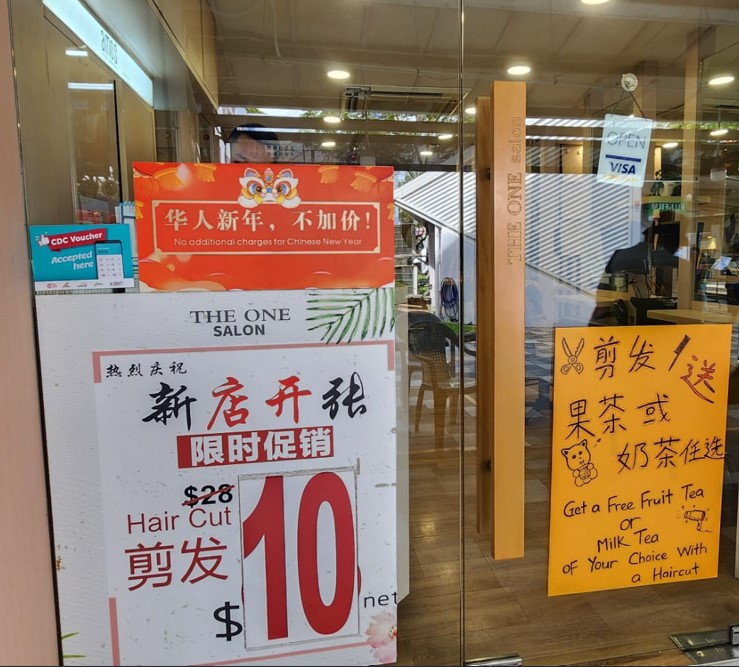 amos
华人新年，不加价！
No additional charges for Chinese New Year
CDC Voucher
Accepted
here
THE ONE
SALON
热烈庆祝
新店开张
限时促销
$28
Hair Cut
剪发
$10 net
THE ONE salon
OPEN
VISA
剪发 送
果茶 或
奶茶任选
Get a Free Fruit Tea
or
Milk Tea
of Your Choice With
a Haircut